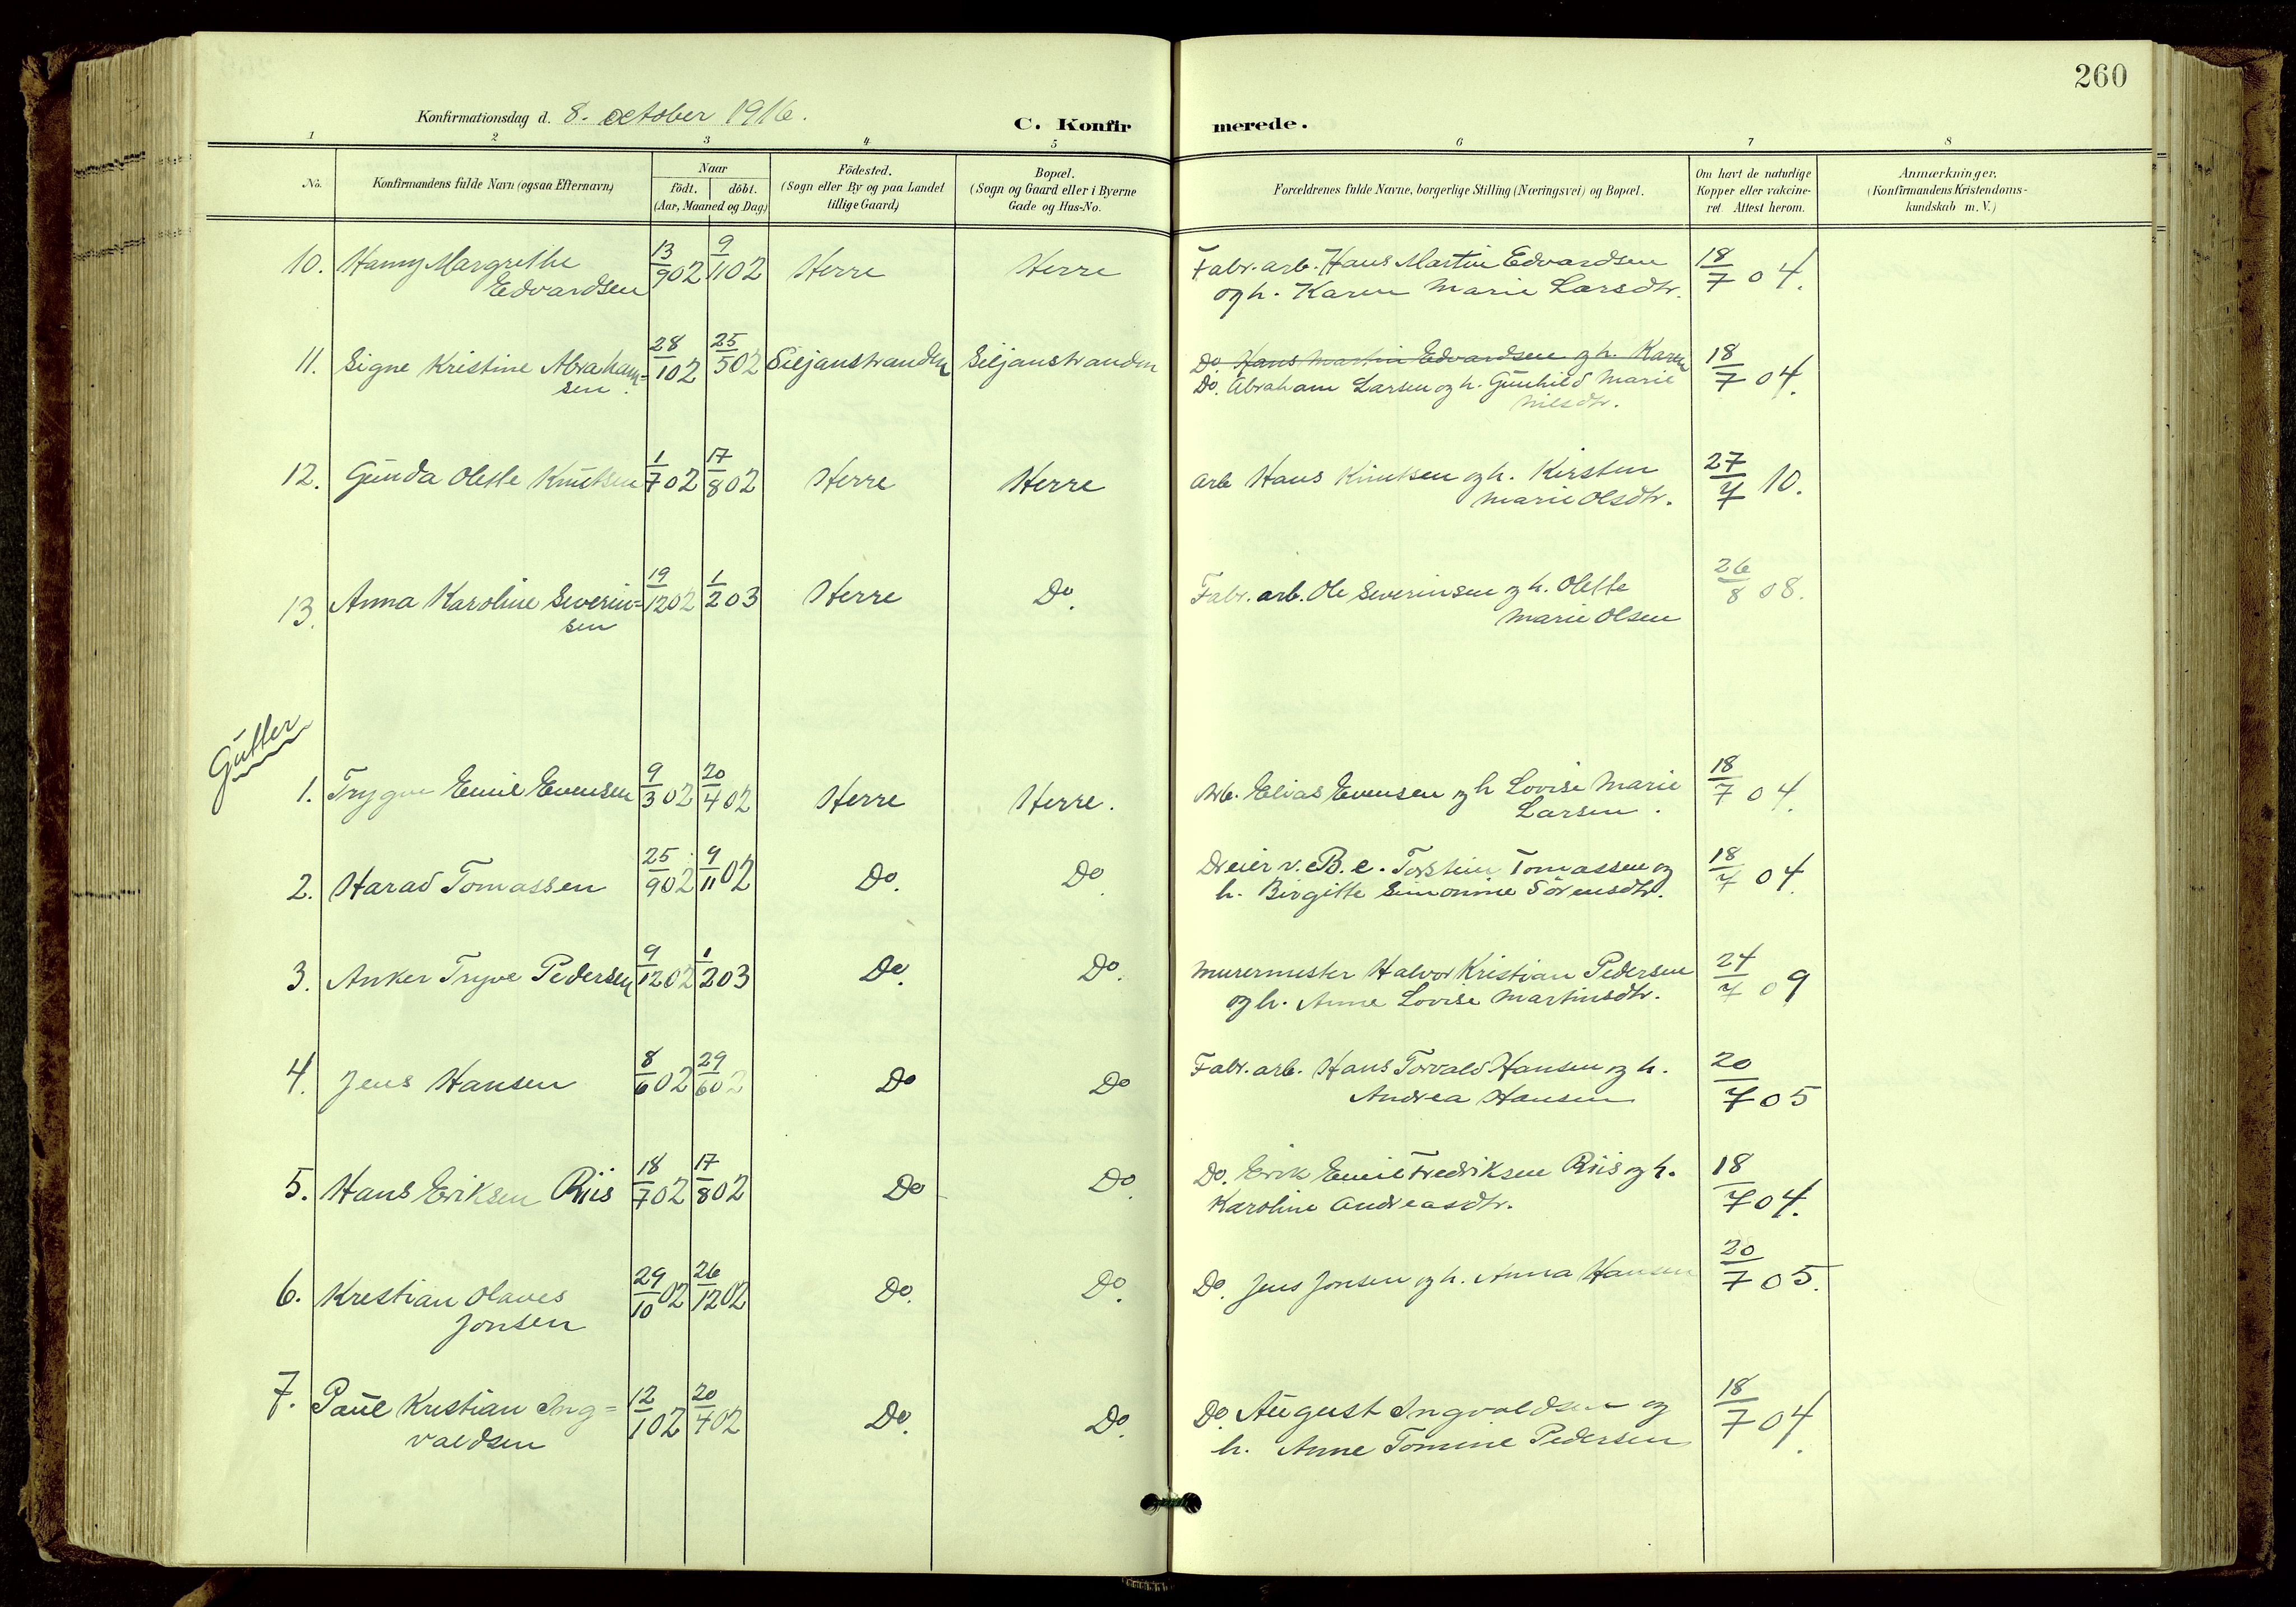 260
Konfirmationsdag d. 8. october 1916.
C. Konfirmerede.
1 2 3 4 5 6 7 8
No.
Konfirmandens fulde Navn (ogsaa Efternavn)
Naar
födt. döbt.
(Aar, Maaned og Dag)
Födested.
(Sogn eller By og paa Landet
tillige Gaard)
Bopæl.
(Sogn og Gaard eller i Byerne
Gade og Hus-No.
Forældrenes fulde Navne, borgerlige Stilling (Næringsvei) og Bopæl.
Om havt de naturlige
Kopper eller vakcine-
ret. Attest herom.
Anmærkninger.
(Konfirmandens Kristendoms-
kundskab m. V.)
10. Hanny Margrethe 13/9 02 9/11 02 Herre Herre Fabr. arb. Hans Martin Edvardsen 18/7 04.
Edvardsen og h. Karen Marie Larsdtr.
11. Signe Kristine Abraham= 28/1 02 25/5 02 Siljanstranden Siljanstranden Do. Hans Martin Edvardsen og h. Karen 18/7 04.
sen. Do. Abraham Larsen og h. Gunhild Marie
Nilsdtr.
12. Gunda Olette Knutsen 1/7 02 17/8 02 Herre Herre arb Hans Knutsen og h. Kirsten 27/7 10.
Marie Olsdtr.
13. Anna Karoline Severin= 19/12 02 1/2 03 Herre Do. Fabr. arb. Ole Severinsen og h. Olette 26/8 08.
sen Marie Olsen
Gutter
1. Trygve Emil Evensen 9/3 02 20/4 02 Herre Herre. Arb. Elias Evensen og h Lovise Marie 18/7 04.
Larsen.
2. Harad Tomassen 25/9 02 9/11 02 Do. Do. Dreier v. B. C. Torstein Tomassen og 18/7 04.
h. Birgitte Simonine Sörensdtr.
3. Anker Tryve Pedersen 9/12 02 1/2 03 Do. Do. Murermester Halvor Kristian Pedersen 24/7 09
og h. Anne Lovise Martinsdtr.
4. Jens Hansen 8/6 02 29/6 02 Do Do Fabr. arb. Hans Torvald Hansen og h. 20/7 05
Andrea Hansen
5. Hans Eriksen Riis 18/7 02 17/8 02 Do Do. Do. Erik Emil Fredriksen Riis og h. 18/7 04.
Karoline Andreasdtr.
6. Krestian Olaves 29/10 02 26/12 02 Do. Do. Do. Jens Jonsen og h. Anna Hansen 20/7 05.
Jonsen
7. Paul Kristian Ing= 12/1 02 20/4 02 Do. Do. Do. August Ingvaldsen og 18/7 04.
valdsen h. Anne Tomine Pedersen